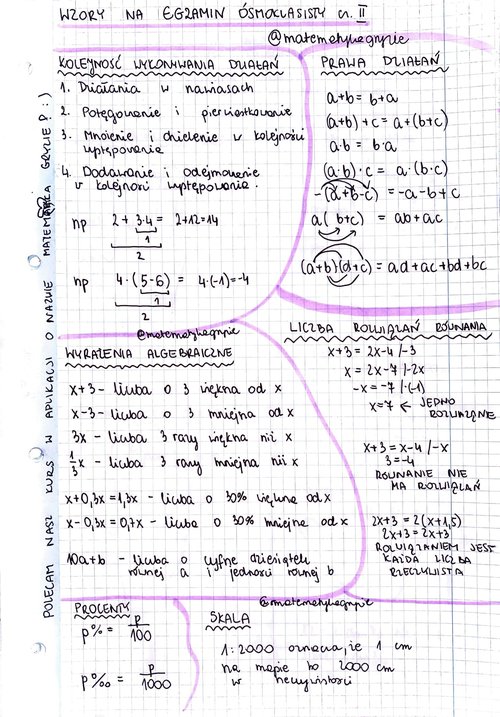 WZORY NA EGZAMIN ÓSMOKLASISTY cz. II
@matematykagryzie
KOLEJNOŚĆ WYKONYWANIA DZIAŁAŃ
1. Działania w nawiasach
2. Potęgowanie i pierwiastkowanie
3. Mnożenie i dzielenie w kolejności
występowania
4. Dodawanie i odejmowanie
w kolejności występowania.
np 2 + 3·4 = 2+12=14
1
2
np 4·(5-6) = 4·(-1)=-4
1
2
@matematykagryzie
PRAWA DZIAŁAŃ
a+b = b+a
(a+b)+c = a+(b+c)
a·b = b·a
(a·b)·c = a·(b·c)
-(a+b-c) = -a-b+c
a(b+c) = ab+ac
(a+b)(d+c) = ad+ac+bd+bc
WYRAŻENIA ALGEBRAICZNE
x+3 - liczba o 3 większa od x
x-3 - liczba o 3 mniejsza od x
3x - liczba 3 razy większa niż x
1/3 x - liczba 3 razy mniejsza niż x
x+0,3x=1,3x - liczba o 30% większa od x
x-0,3x=0,7x - liczba o 30% mniejsza od x
10a+b - liczba o cyfrze dziesiątek
równej a i jedności równej b
LICZBA ROZWIĄZAŃ RÓWNANIA
x+3 = 2x-4 /-3
x = 2x-7 /-2x
-x = -7 /·(-1)
x=7 ← JEDNO
ROZWIĄZANIE
x+3 = x-4 /-x
3=-4
RÓWNANIE NIE
MA ROZWIĄZAŃ
2x+3 = 2(x+1,5)
2x+3 = 2x+3
ROZWIĄZANIEM JEST
KAŻDA LICZBA
RZECZYWISTA
@matematykagryzie
PROCENTY
p% = p/100
p‰ = p/1000
SKALA
1:2000 oznacza, że 1 cm
na mapie to 2000 cm
w rzeczywistości
POLECAM NASZ KURS W APLIKACJI O NAZWIE MATEMATYKA GRYZIE? :)